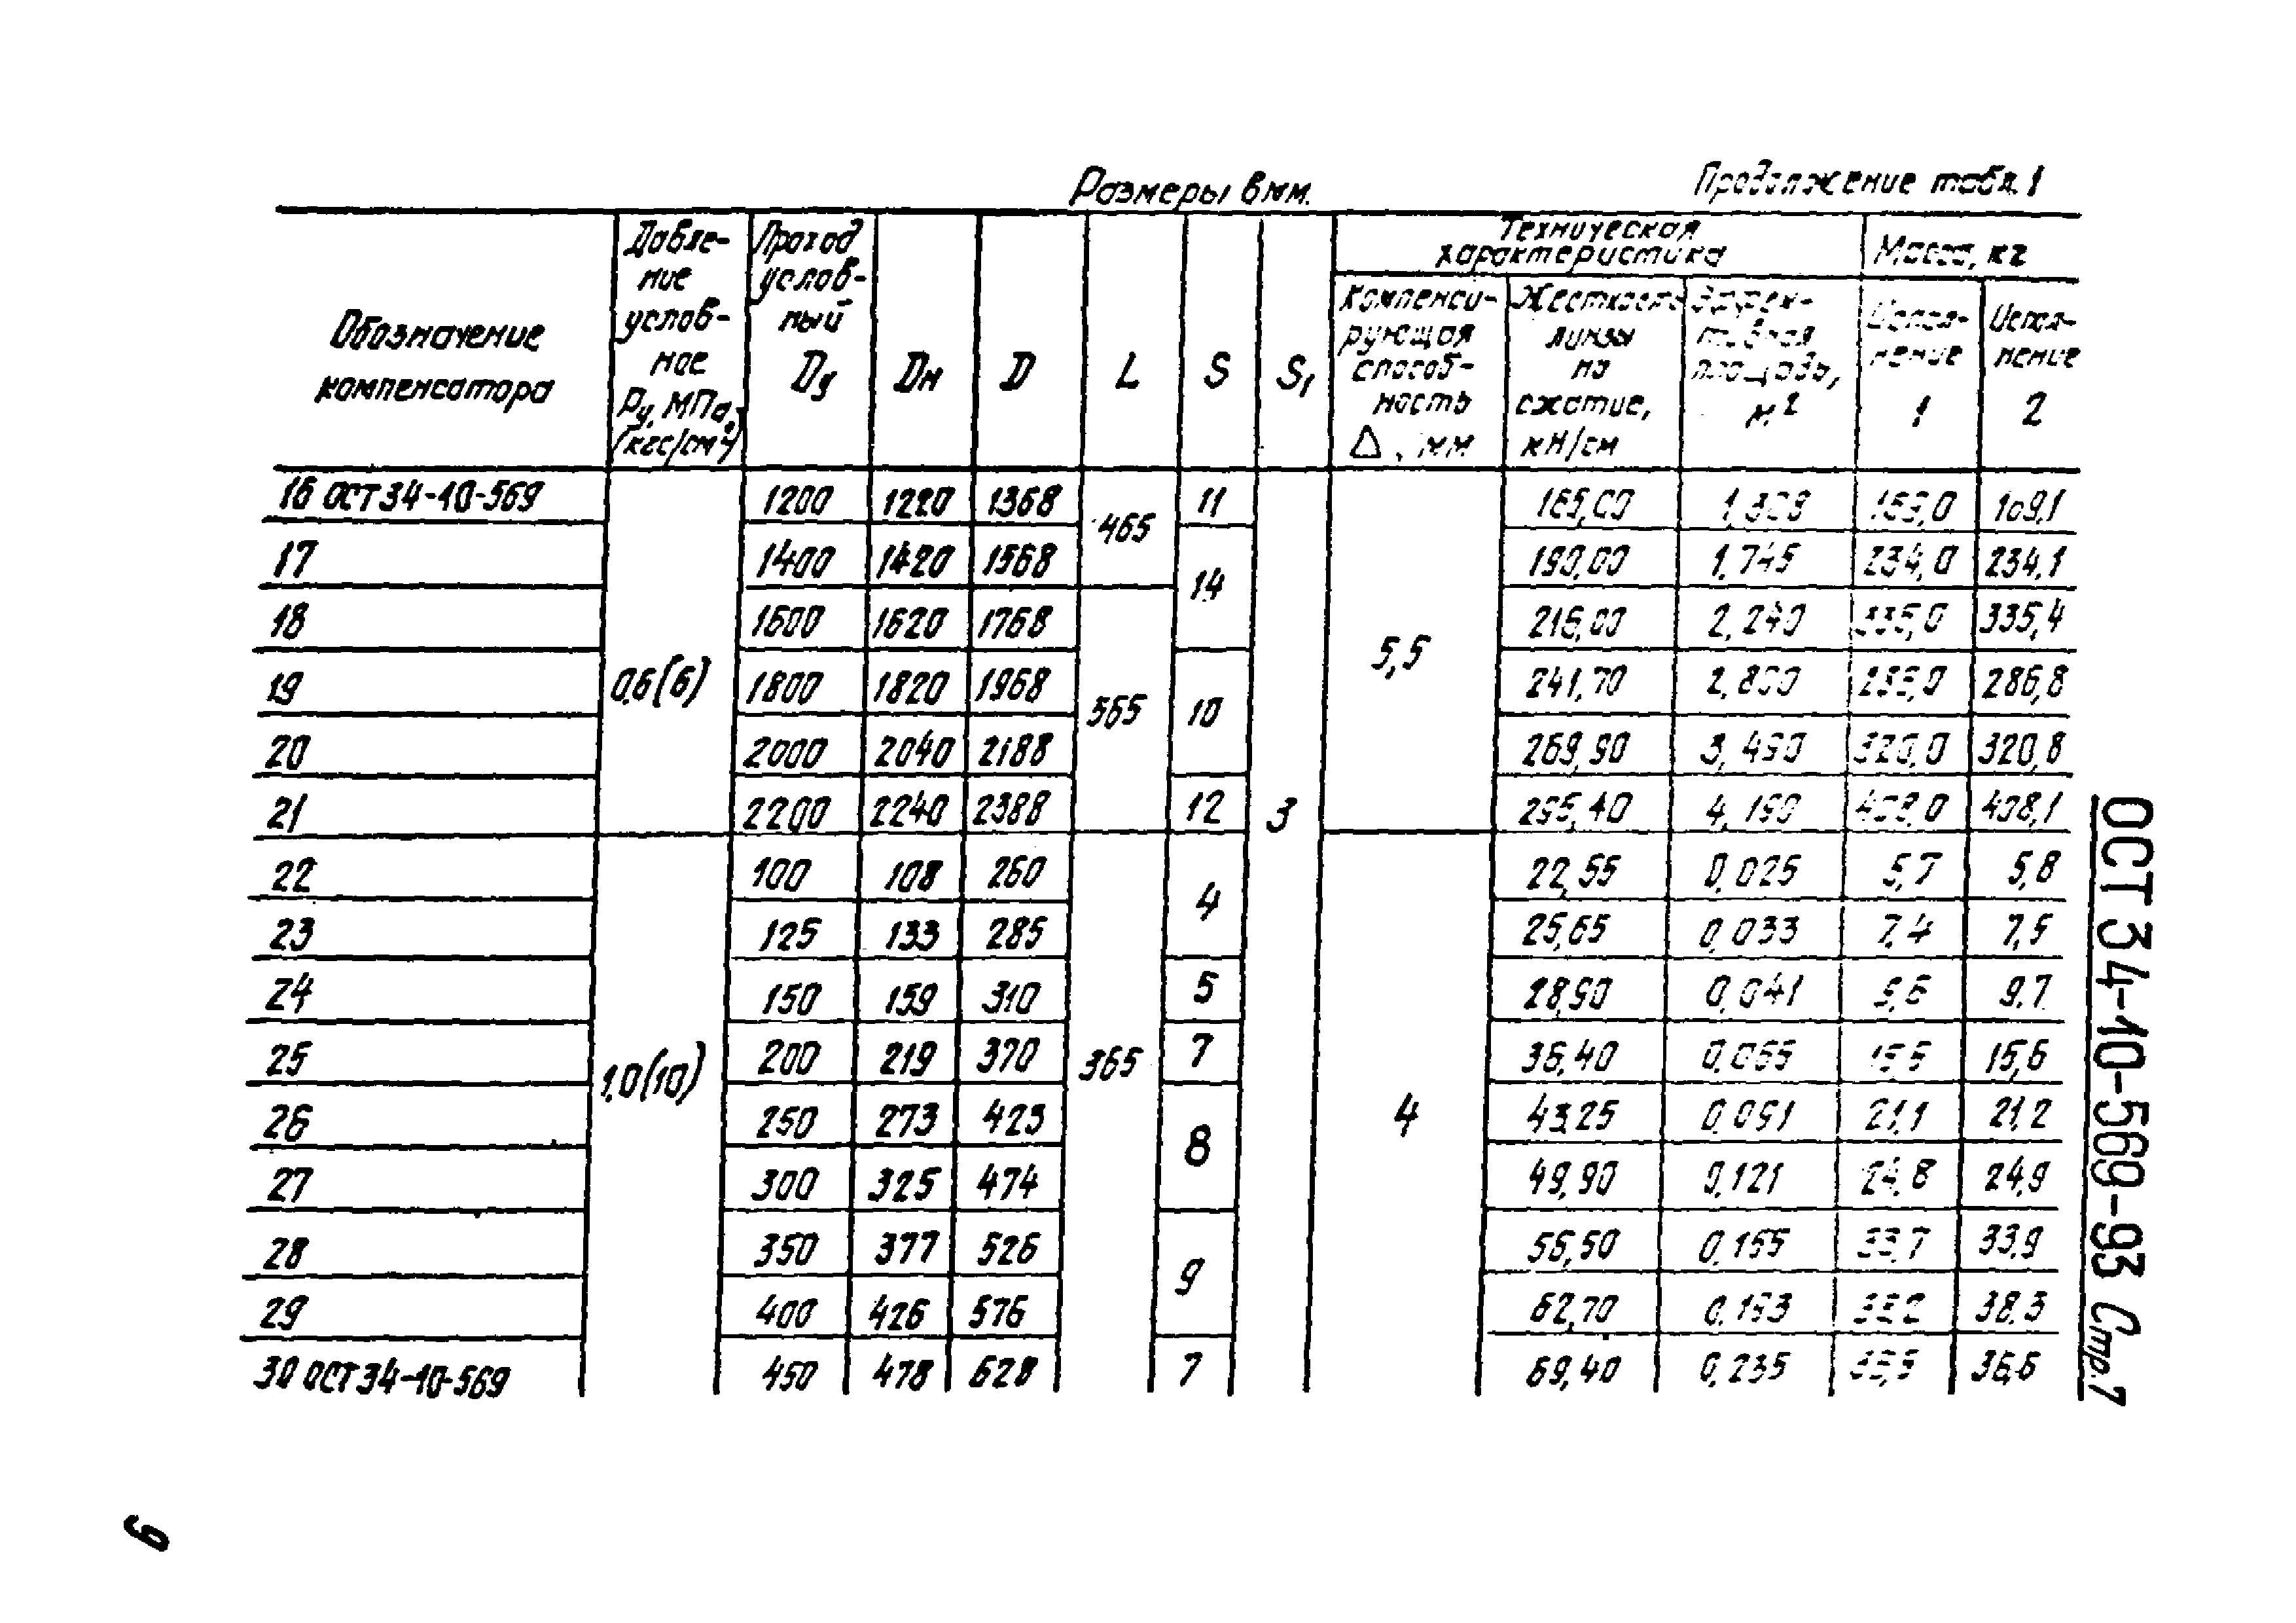 Размеры в мм.
Продолжение табл. 1
Обозначение компенсатора
Давле-
ние
услов-
ное
Ру, МПа,
(кгс/см²)
Проход
услов-
ный
Dу
Dн
D
L
S
S₁
Техническая
характеристика
Масса, кг
Компенси-
рующая
способ-
ность
Δ, мм
Жесткость
линзы
на
сжатие,
кН/см
Эффек-
тивная
площадь,
м²
Испол-
нение
1
Испол-
нение
2
16 ОСТ 34-10-569 0,6(6) 1200 1220 1368 465 11 3 5,5 165,00 109,1
17 1400 1420 1568 14 190,00 1,745 234,0 234,1
18 1600 1620 1768 565 216,00 2,240 335,0 335,4
19 1800 1820 1968 10 241,70 286,8
20 2000 2040 2188 269,90 3,490 320,0 320,8
21 2200 2240 2388 12 295,40 4,190 408,1
22 1,0(10) 100 108 260 365 4 4 22,55 0,025 5,7 5,8
23 125 133 285 25,65 0,033 7,4 7,5
24 150 159 310 5 28,90 0,041 9,6 9,7
25 200 219 370 7 36,40 0,065 15,6
26 250 273 423 8 43,25 0,091 21,1 21,2
27 300 325 474 49,90 0,121 24,8 24,9
28 350 377 526 9 56,50 0,155 33,7 33,9
29 400 426 576 62,70 0,193 38,3
30 ОСТ 34-10-569 450 478 628 7 69,40 0,235 36,6
ОСТ 34-10-569-93 Стр. 7
9